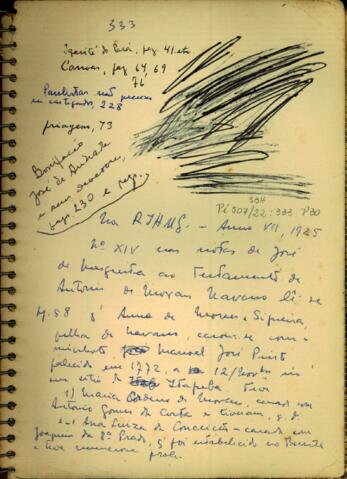 333
pag 41 etc
Canoas, pag 64, 69
76
Paulistas não
castigados, 228
priagem, 73
Bonifacio
José de Andrada
e seus
pag. 230 e seg.
SBH
Pi 307/22 : 333 P30
Na RIHGS. - Anno VII, 1925
Nº XIV nas notas de José
de Mesquita ao Testamento de
Antonio de Moraes Navarro lê-se
4.58 q Anna de Moraes e Siqueira,
filha de Navarro, casou-se com o
Manuel José Pinto
falecido em 1772, a 12/Novbr in
seu sitio de Itapeba Teve
1) Maria de Moraes, casada com
Antonio Gomes da Costa e tiveram, q. d.
2-1 Ana Luiza da Conceição - casada com
Joaquim da Sª Prado, q foi estabelecido no
e teve numerosa prole.